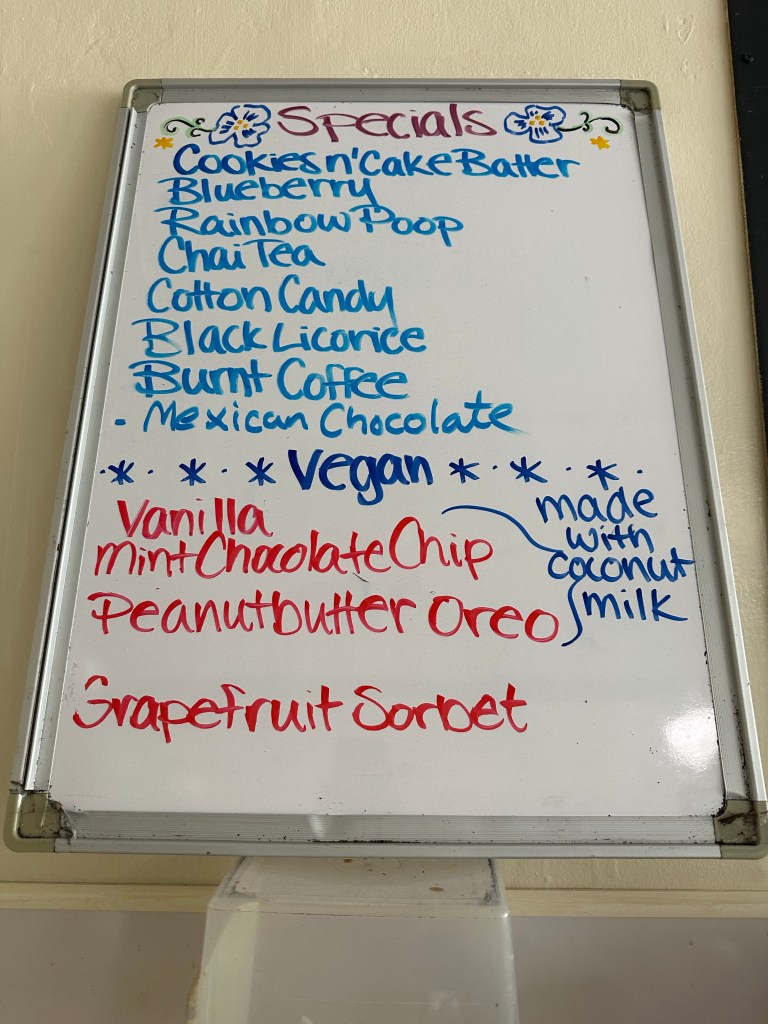 Specials
Cookies n' Cake Batter
Blueberry
Rainbow Poop
Chai Tea
Cotton Candy
Black Licorice
Burnt Coffee
· Mexican Chocolate
* · * · * Vegan * · * · * ·
Vanilla
Mint Chocolate Chip
Peanutbutter Oreo
made
with
coconut
milk
Grapefruit Sorbet